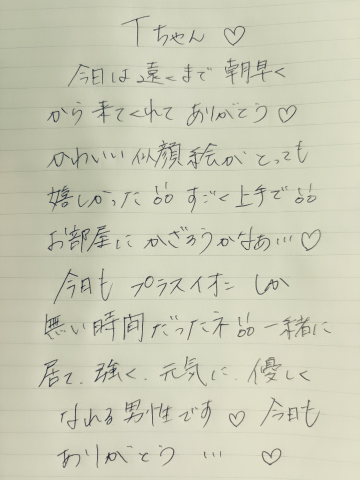 Tちゃん ♡
今日は遠くまで 朝早く
から来てくれて ありがとう♡
かわいい似顔絵が とっても
嬉しかった すごく上手で
お部屋に かざろうかなぁ…♡
今日も プラスイオン しか
無い時間だったネ 一緒に
居て、強く、元気に、優しく
なれる男性です ♡ 今日も
ありがとう … ♡